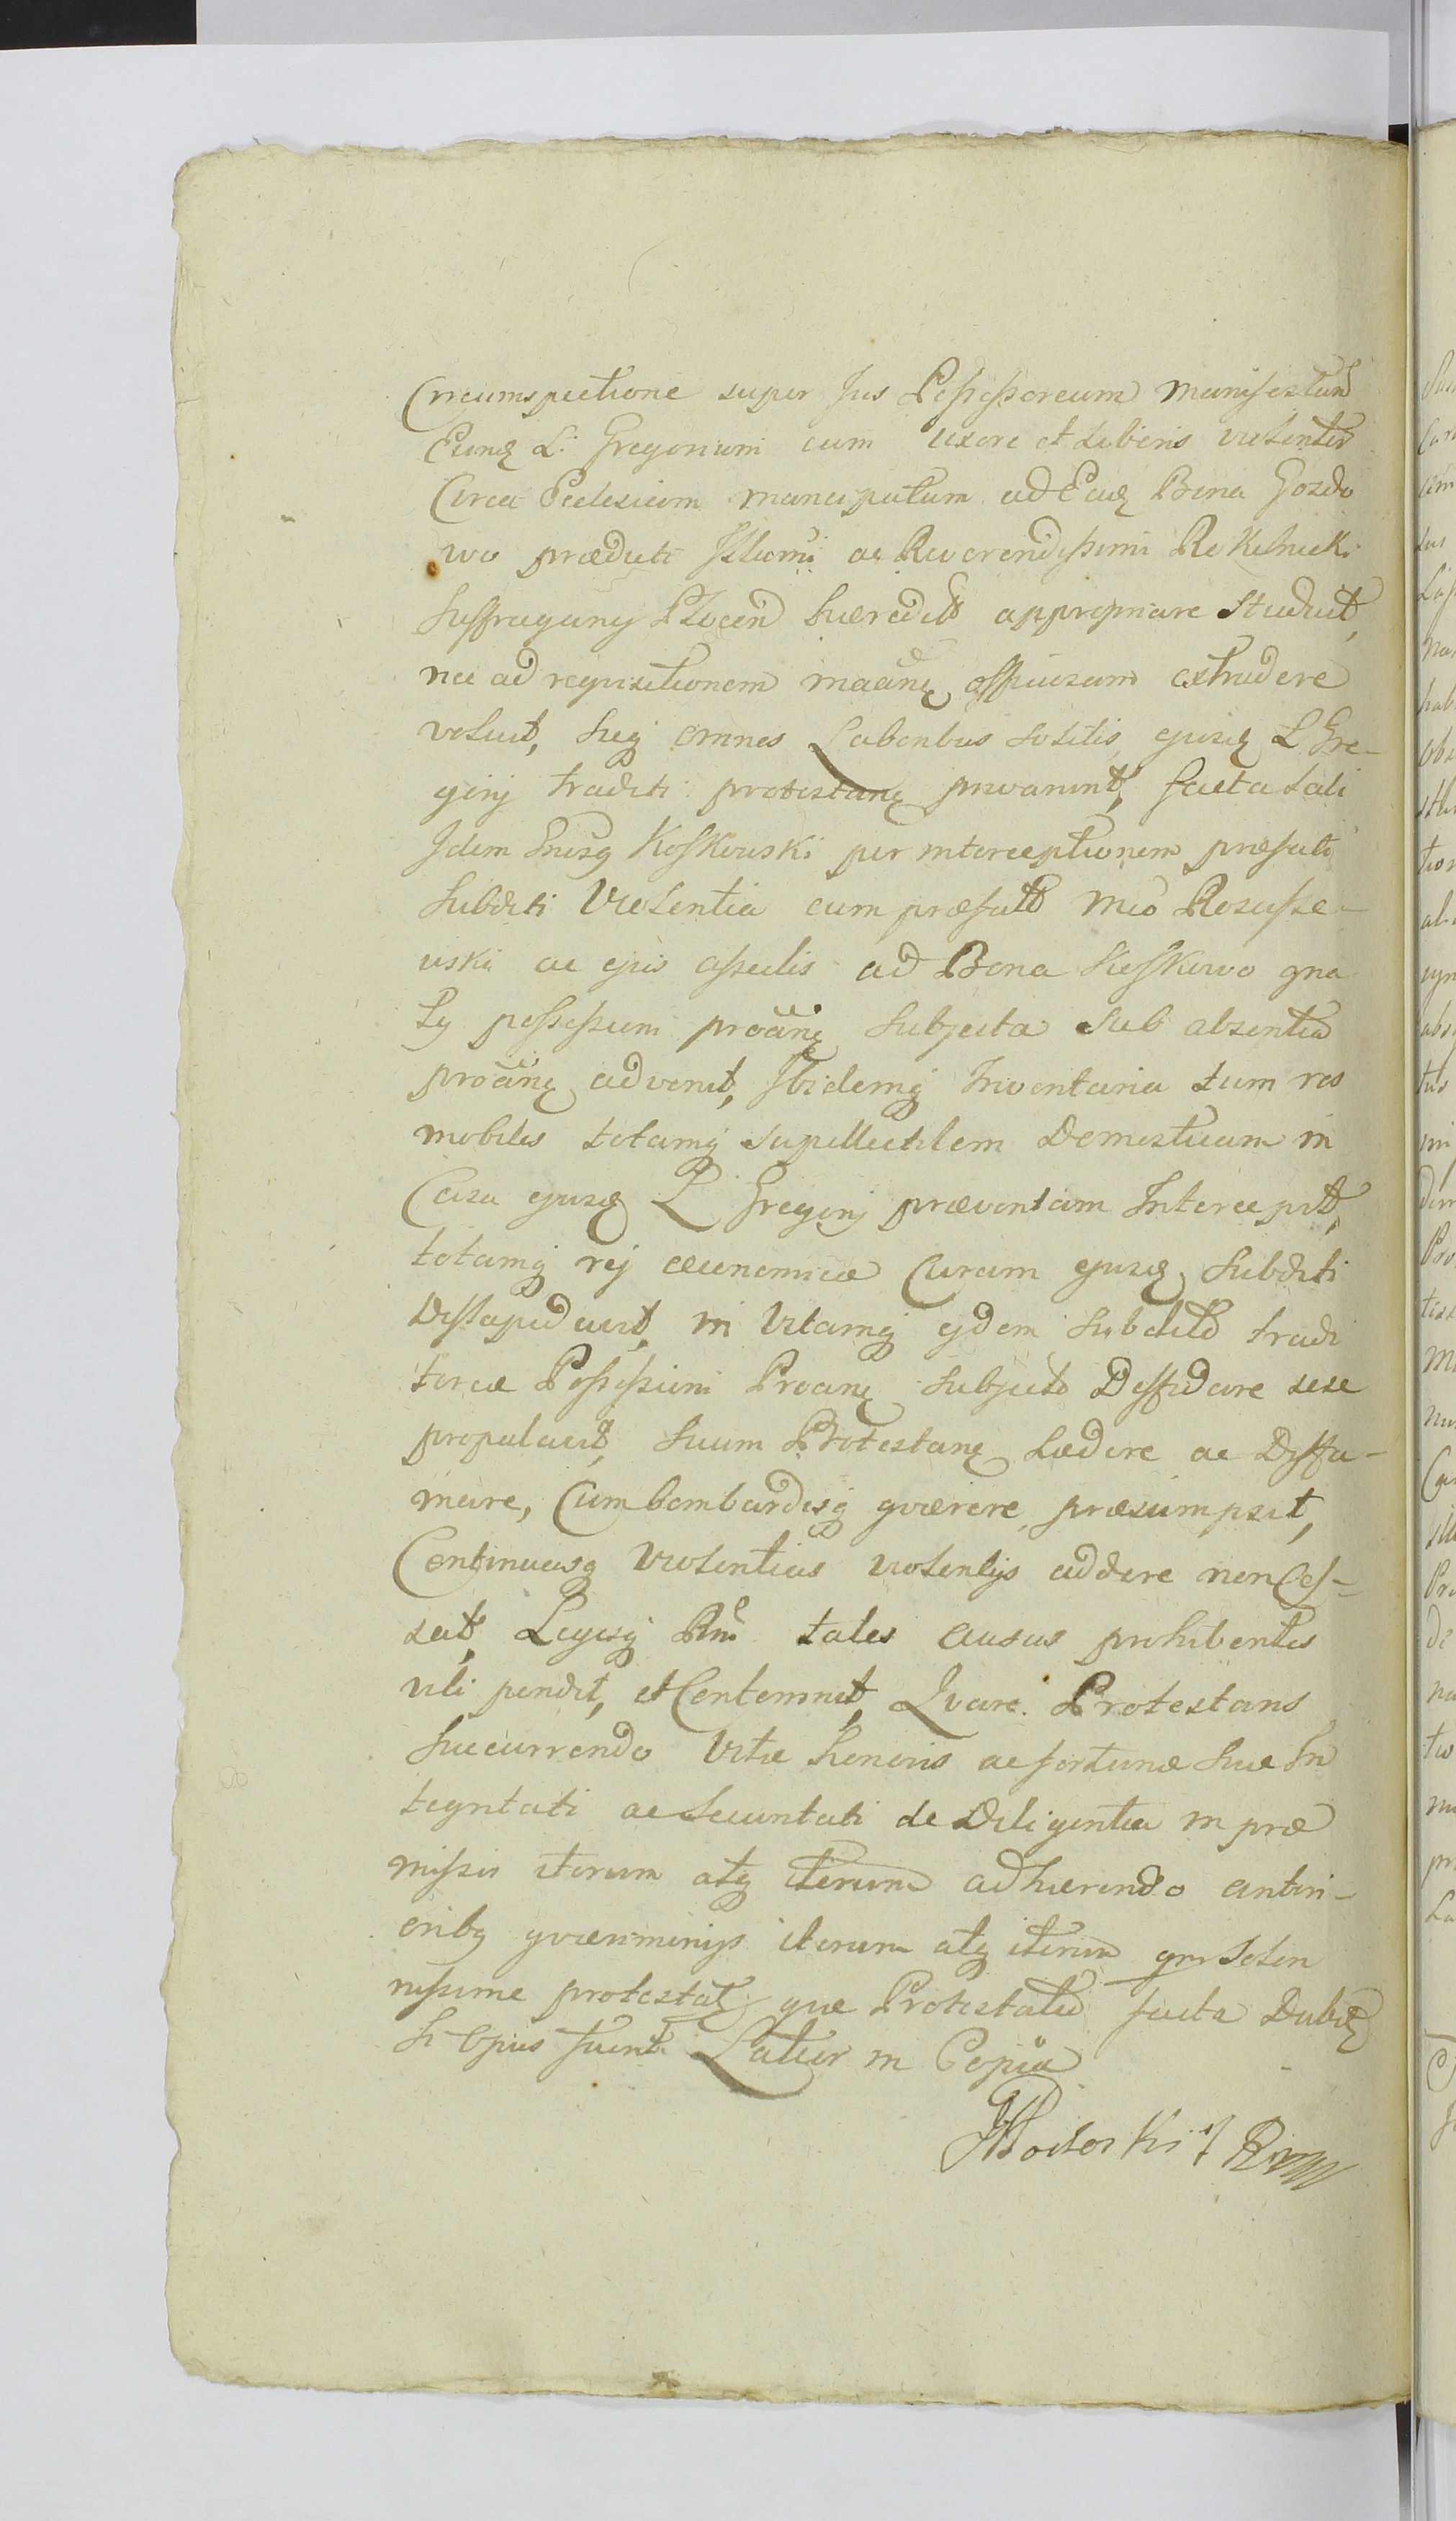 Circumspectione super Jus Possessoreum manifestum
Eunq L: Gregorium cum uxore et Liberis violenter
Circa Ecclesiam mancipatum ad Eaq Bona Gozdo
wo prædicti Illumi ac Reverendissimi Rokelnicki
Suffragany Plocen hæredit appropriare studuit,
nec ad requisitionem officiosam extradere
voluit, Suq omnes Laboribus solitis, ejusq L Gre-
gorij traditi protestanq privarunt, facta tali
Idem Gnisq Koskowski per interceptionem præfati
Subditi Violentia cum præfato Mco Rosciszе-
wski ac ejus asseclis ad Bona Sieskowo gna
Ly possessioni proãnq Subjecta Sub absentia
proãnq advenit, Ibidemq Inventaria tum res
mobiles totamq supellectilem Domesticam in
Casa ejusq L Gregorij præventam Intercepit,
totamq rej œconomicæ Curam ejusq Subditi
Dissapidavit, in Vitamq ejdem Subdito tradi
toriæ Possessioni Proanq Subjecto Diffidare sese
propalavit, Suum Protestanq Lædere ac Diffa-
mare, Cum bombardisq quærere præsumpsit,
Continuasq Violentias violentijs addere non Ces-
sat, Legesq Rni tales ausus prohibentes
vili pendit, et Contemnit, Qvare Protestans
Succurrendo Vitæ honoris ac fortunæ Suæ In
tegritati ac Securitati de Diligentia in præ
missis iterum atq iterum adhærendo anteri-
oribq gværiminijs iterum atq iterum solen
nissime protestatq que Protestatio facta Dabitq
Si Opus fuerit Latior in Copia